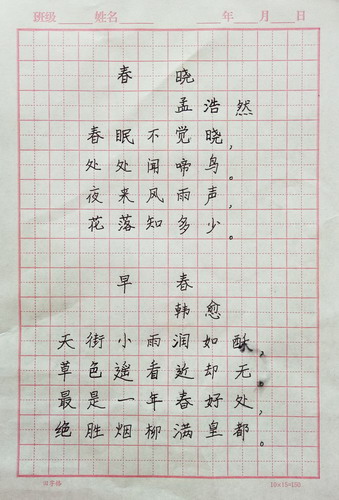 班级 姓名 年 月 日
春 晓
孟 浩 然
春 眠 不 觉 晓，
处 处 闻 啼 鸟。
夜 来 风 雨 声，
花 落 知 多 少。
早 春
韩 愈
天 街 小 雨 润 如 酥，
草 色 遥 看 近 却 无。
最 是 一 年 春 好 处，
绝 胜 烟 柳 满 皇 都。